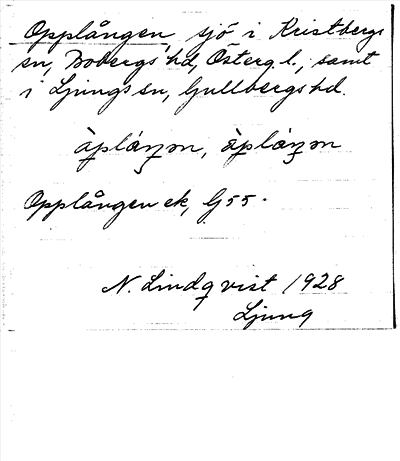 Opplången, sjö i Kristbergs
sn, Bobergs hd, Österg. l., samt
i Ljungs sn, Gullbergs hd.
Opplången ek, G55.
N. Lindqvist 1928
Ljung